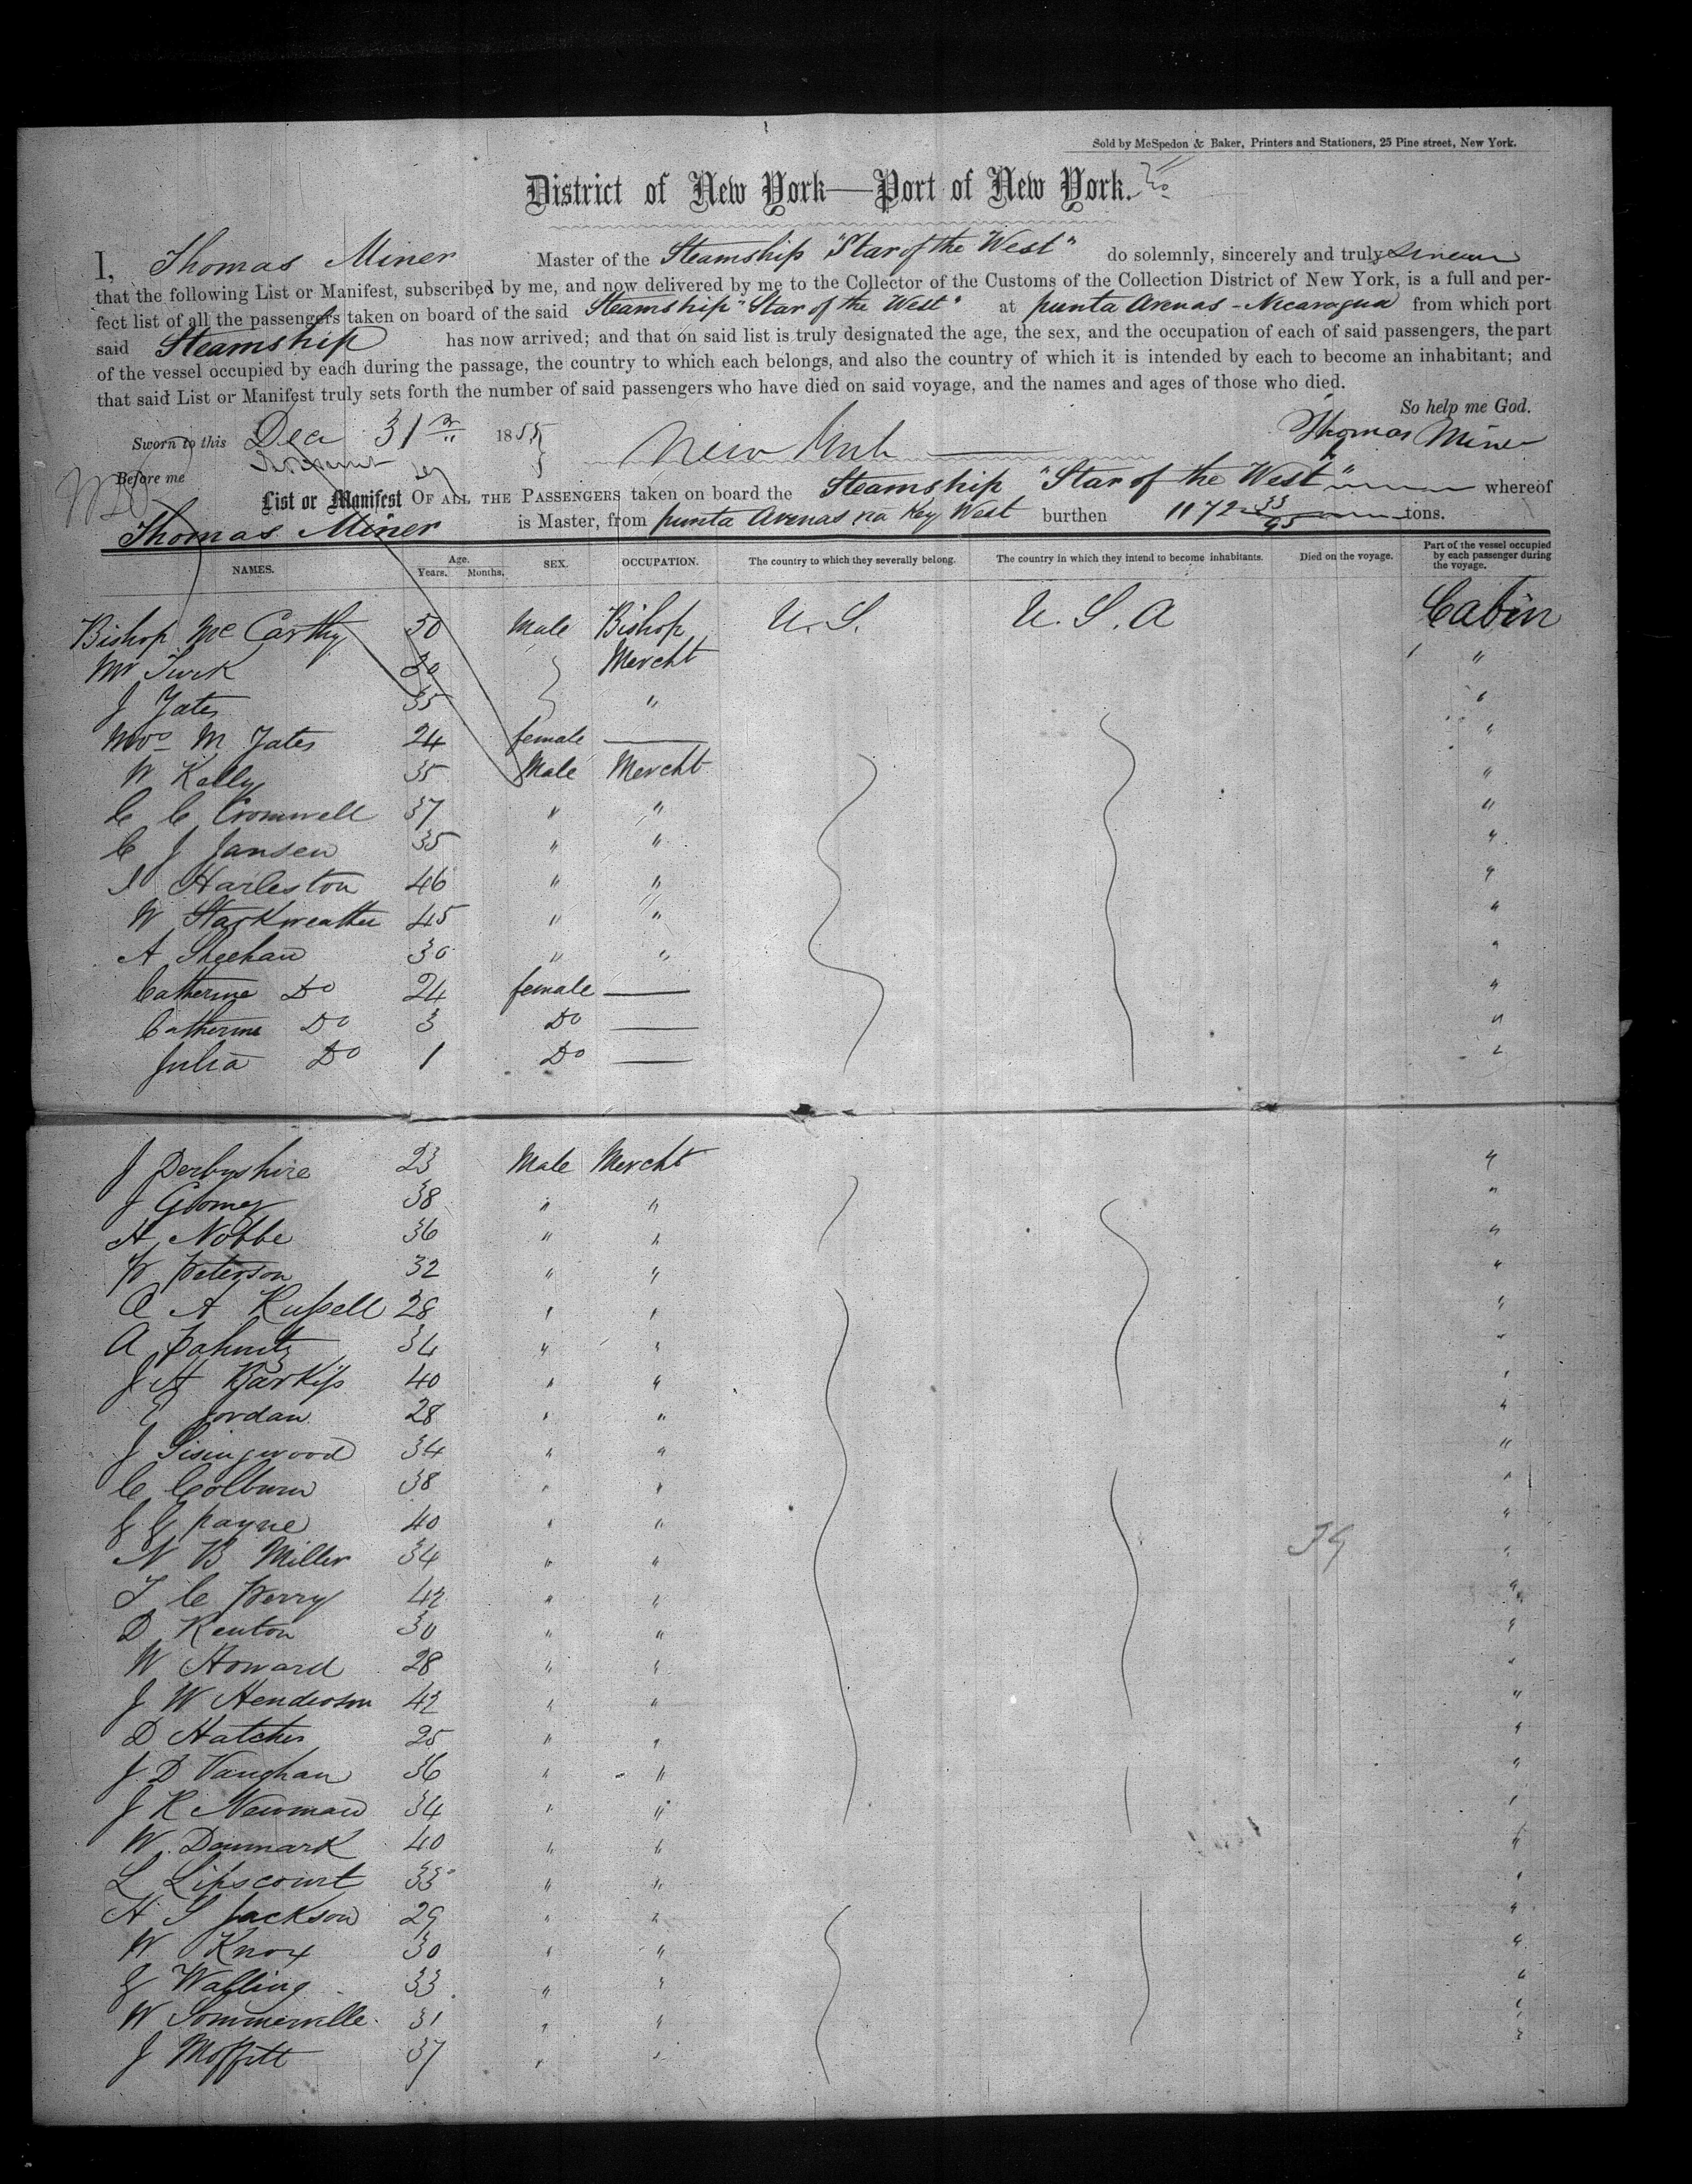 Sold by McSpedon & Baker, Printers and Stationers, 25 Pine street, New York.
District of New York—Port of New York.
I, Thomas Miner Master of the Steamship "Star of the West" do solemnly, sincerely and truly
that the following List or Manifest, subscribed by me, and now delivered by me to the Collector of the Customs of the Collection District of New York, is a full and per-
fect list of all the passengers taken on board of the said Steamship "Star of the West" at punta Arenas - Nicaragua from which port
said Steamship has now arrived; and that on said list is truly designated the age, the sex, and the occupation of each of said passengers, the part
of the vessel occupied by each during the passage, the country to which each belongs, and also the country of which it is intended by each to become an inhabitant; and
that said List or Manifest truly sets forth the number of said passengers who have died on said voyage, and the names and ages of those who died.
So help me God.
Sworn to this Dec 31 1855 New York Thomas Miner
Before me
List or Manifest OF ALL THE PASSENGERS taken on board the Steamship "Star of the West" whereof
Thomas Miner is Master, from punta Arenas via Key West burthen 1172 33/95 tons.
NAMES. Age. Years. Months. SEX. OCCUPATION. The country to which they severally belong. The country in which they intend to become inhabitants. Died on the voyage. Part of the vessel occupied by each passenger during the voyage.
Bishop Mc Carthy 50 Male Bishop U. S. U. S. A Cabin
Mr Turk 30 Mercht "
J Yates 35 " "
Mrs M Yates 24 female — "
W Kelly 35 Male Mercht "
C C Cromwell 37 " " "
C J Jansen 35 " " "
Harleston 46 " " "
W Starkweather 45 " " "
A Sheehan 30 " " "
Catherine Do 24 female — "
Catherine Do 3 Do — "
Julia Do 1 Do — "
J Derbyshire 23 Male Mercht "
J Gomez 38 " " "
H Nobbe 36 " " "
W Peterson 32 " " "
A Russell 28 " " "
A 34 " " "
J H 40 " " "
Jordan 28 " " "
J 34 " " "
C Colburn 38 " " "
payne 40 " " "
N B Miller 34 " " "
T C Perry 42 " " "
D Kenton 30 " " "
W Howard 28 " " "
J W Henderson 42 " " "
D Hatcher 25 " " "
J D Vaughan 36 " " "
J R Newman 34 " " "
W. Denmark 40 " " "
L Lipscourt 33 " " "
H S Jackson 29 " " "
W Knox 30 " " "
Walling 33 " " "
W Sommerville 31 " " "
J Moffitt 37 " " "
39